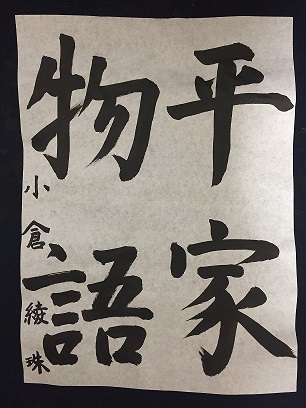 平家
物語
小倉綾珠